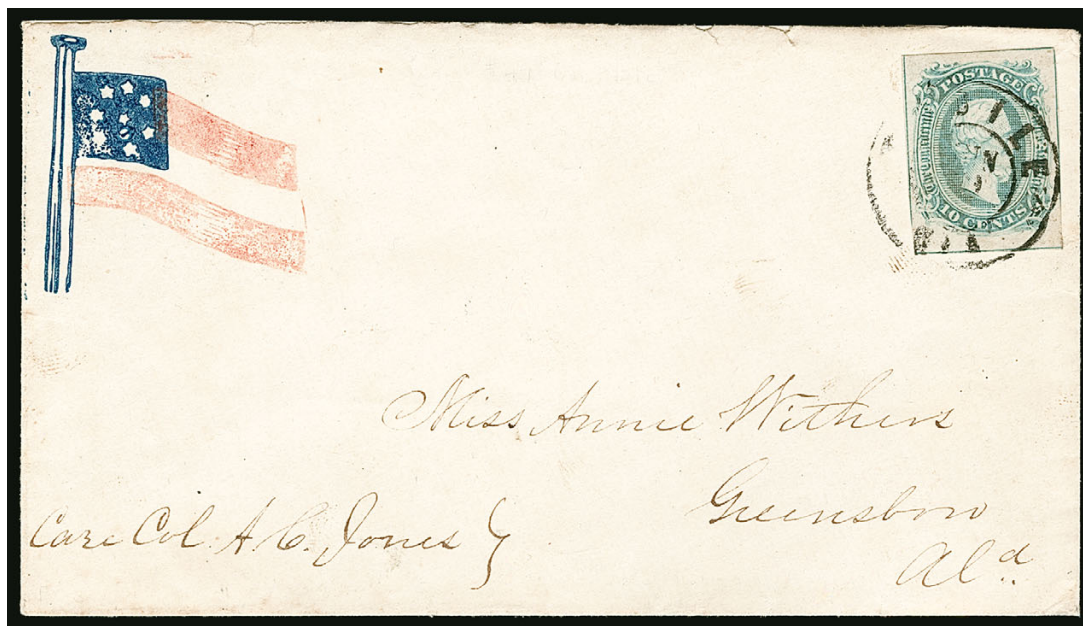 POSTAGE
TEN CENTS
BILE
ALA
Miss Annie Withers
Greensboro
Ala
Care Col. A C. Jones